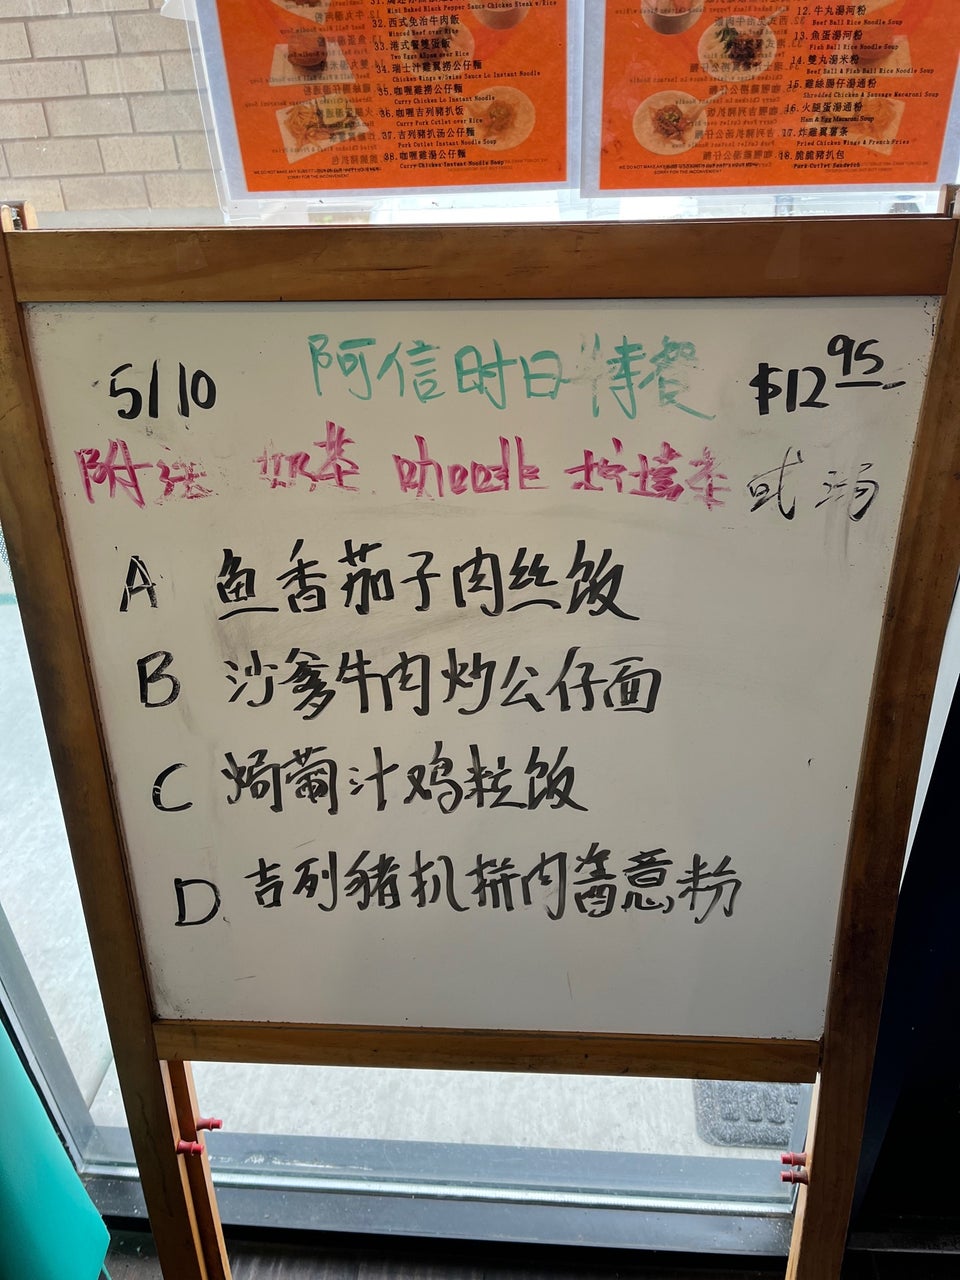 32. 西式免治牛肉飯
Minced Beef over Rice
33. 港式餐雙蛋飯
Two Eggs &Spam over Rice
34. 瑞士汁雞翼撈公仔麵
Chicken Wings w/Swiss Sauce Lo Instant Noodle
35. 咖喱雞撈公仔麵
Curry Chicken Lo Instant Noodle
36. 咖喱吉列豬扒飯
Curry Pork Cutlet over Rice
37. 吉列豬扒汤公仔麵
Pork Cutlet Instant Noodle Soup
38. 咖喱雞湯公仔麵
Curry Chicken Instant Noodle Soup
12. 牛丸湯河粉
Beef Ball Rice Noodle Soup
13. 魚蛋湯河粉
Fish Ball Rice Noodle Soup
14. 雙丸湯米粉
Beef Ball & Fish Ball Rice Noodle Soup
15. 雞絲腸仔湯通粉
Shredded Chicken & Sausage Macaroni Soup
16. 火腿蛋湯通粉
Ham & Egg Macaroni Soup
17. 炸雞翼薯条
Fried Chicken Wings & French Fries
18. 脆脆豬扒包
Pork Cutlet Sandwich
5/10 阿信时日特餐 $12.95
附送 奶茶 咖啡 柠檬茶 或 汤
A 鱼香茄子肉丝饭
B 沙爹牛肉炒公仔面
C 焗葡汁鸡粒饭
D 吉列豬扒拼肉酱意粉